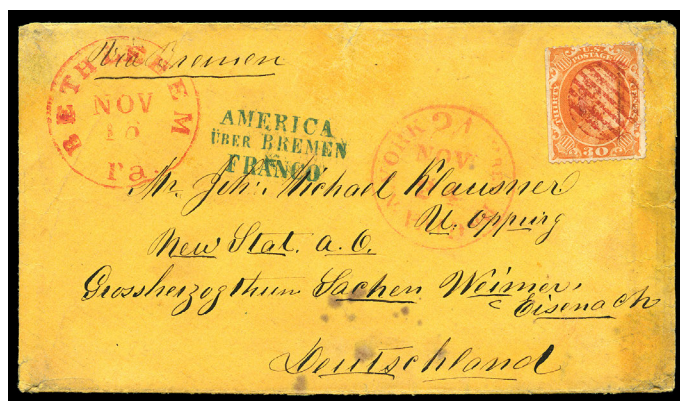 Via Bremen
BETHLEHEM
NOV
16
Pa.
AMERICA
ÜBER BREMEN
FRANCO
24
NOV.
U.S.
POSTAGE
THIRTY
CENTS
30
Mr. Joh. Michael Klausner
U. Oppurg
New Stat. a. O.
Grossherzogthum Sachen Weimer,
Eisenach
Deutschland